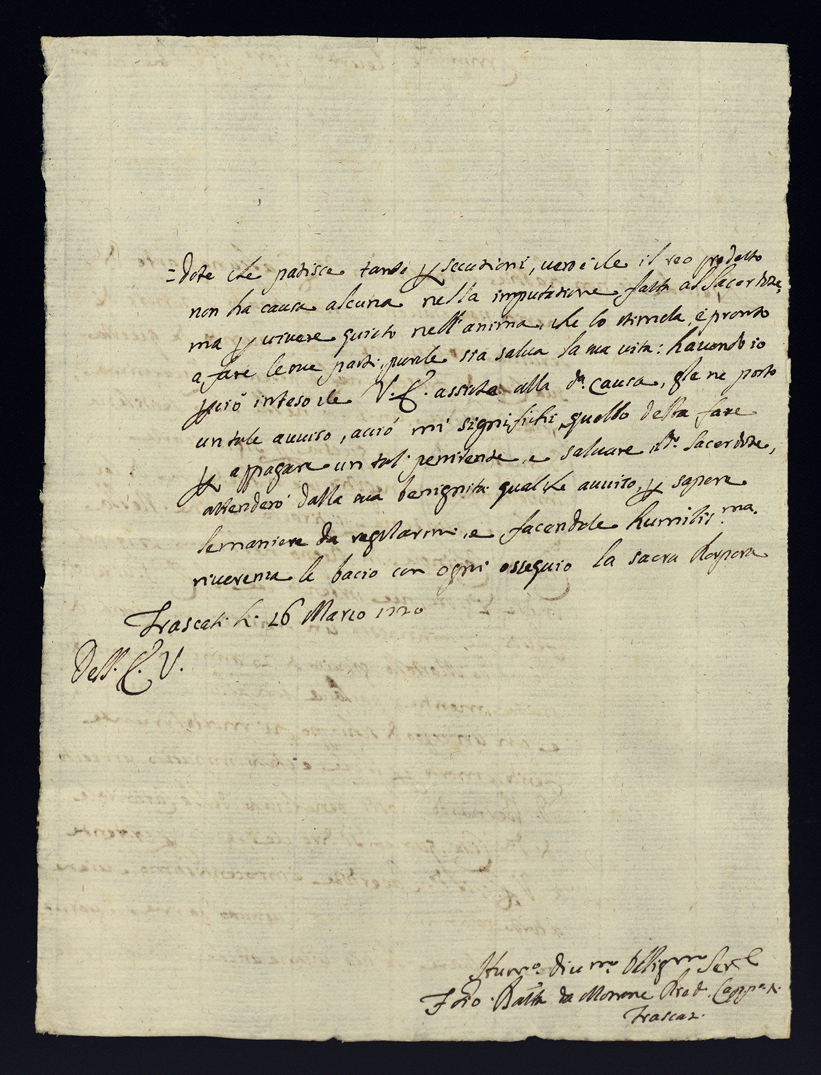 =dote che patisce tante persecutioni, vero è che il reo predetto
non ha causa alcuna nella imputatione fatta al Sacerdote,
ma p vivere quieto nell'anima, che lo stimola, è pronto
a fare le sue parti, purche sia salva la sua vita: havendo io
perciò inteso che V. E. assiste alla da. causa, gle ne porto
un tale avviso, acciò mi significhi quello della fare
p appagare un tal penitente, e salvare il do. Sacerdote,
attenderò dalla sua benignità qualche avviso, p sapere
le maniere da regolarmi, e facendole humiliss.ma
riverenza le bacio con ogni ossequio la sacra Porpora
Frascati li 26 Marzo 1720
Dell. E. V.
Hum.o Div.mo Oblig.mo Ser.e
Batta da Morone Pred. Capp.o
Frascati